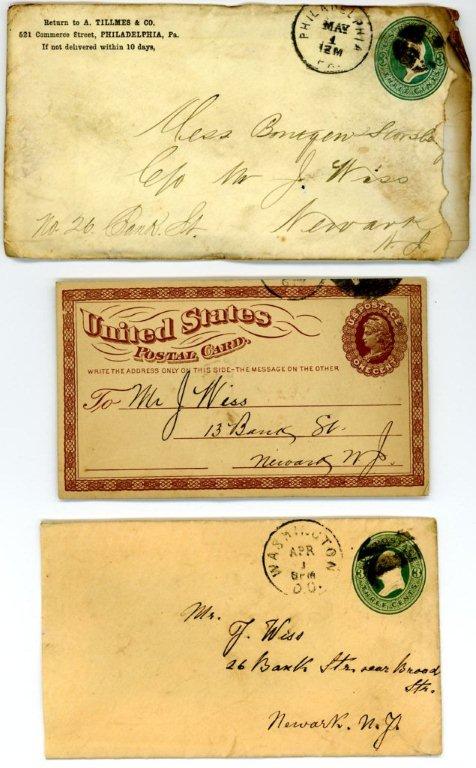 Return to A. TILLMES & CO.
521 Commerce Street, PHILADELPHIA, Pa.
If not delivered within 10 days,
PHILADELPHIA
MAY
1
12M
PA.
THREE CENTS
Mess
C/o Mr J. Wiss
No. 26 Bank. St. Newark
N J
United States
POSTAL CARD.
WRITE THE ADDRESS ONLY ON THIS SIDE-THE MESSAGE ON THE OTHER
U.S. POSTAGE
ONE CENT
To Mr J Wiss
13 Bank St.
Newark N J.
WASHINGTON
APR
1
8PM
D.C.
THREE CENTS
Mr.
J. Wiss
26 Bank Str. near Broad
Str.
Newark. N. J.